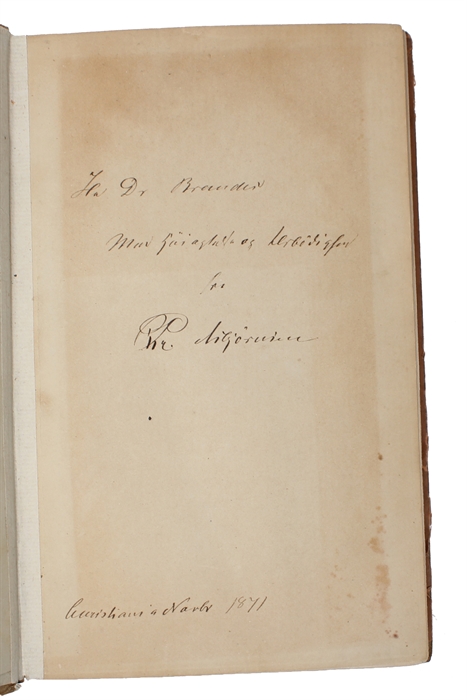 Hr Dr Brandes
Med Høiagtelse og Ærbødighed
fra
P. Chr. Asbjørnsen
Christiania Novbr 1871